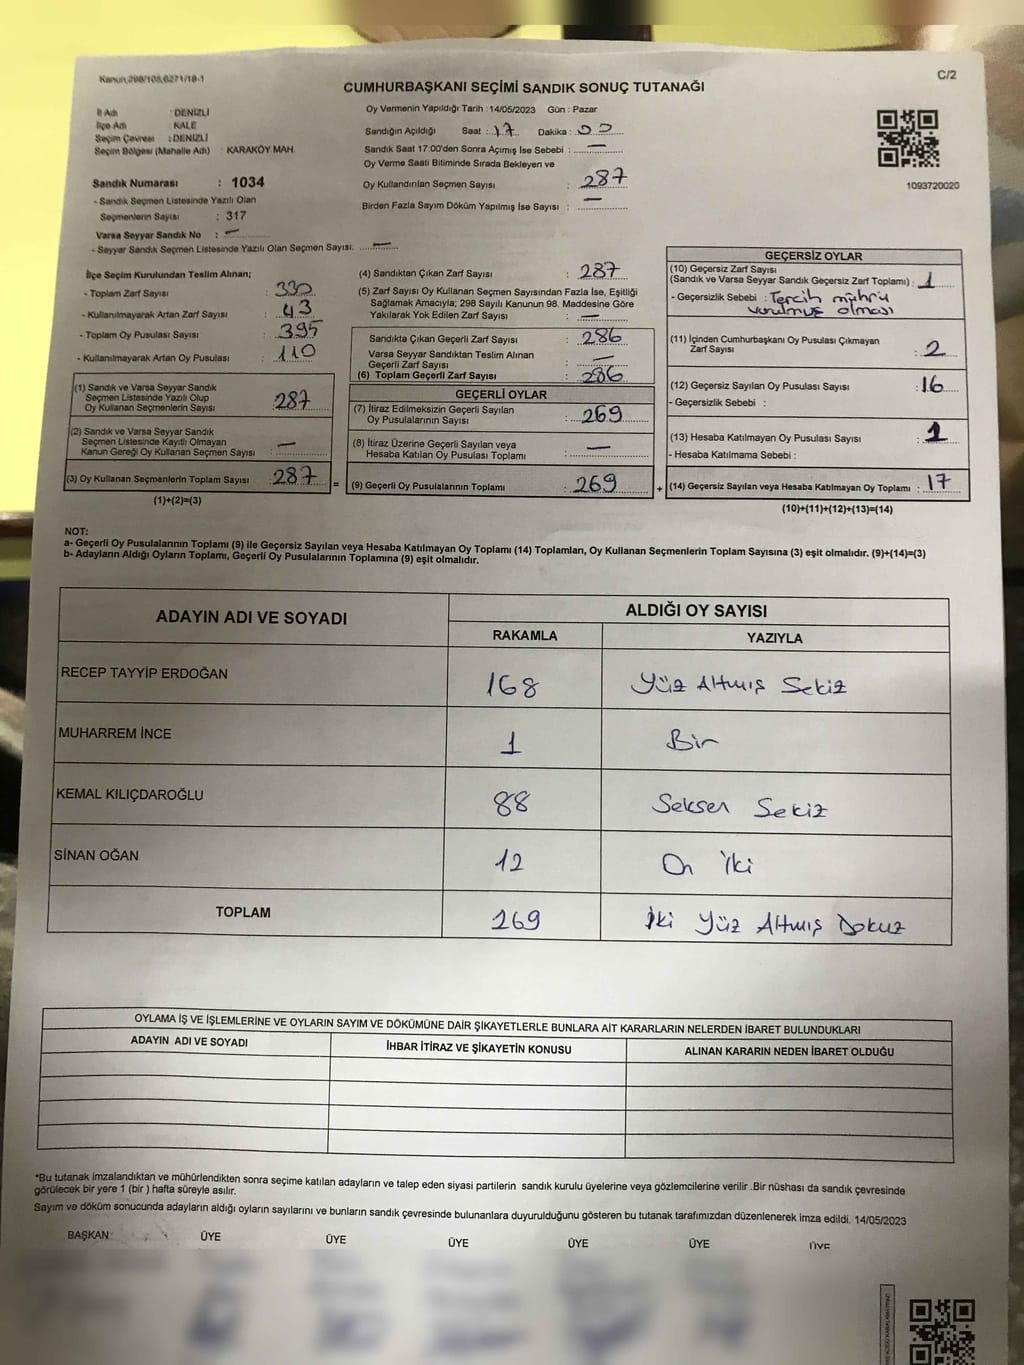 Kanun,298/105,6271/18-1
C/2
CUMHURBAŞKANI SEÇİMİ SANDIK SONUÇ TUTANAĞI
İl Adı : DENİZLİ
İlçe Adı : KALE
Seçim Çevresi : DENİZLİ
Seçim Bölgesi (Mahalle Adı) : KARAKÖY MAH.
Sandık Numarası : 1034
- Sandık Seçmen Listesinde Yazılı Olan
Seçmenlerin Sayısı : 317
Varsa Seyyar Sandık No : —
- Seyyar Sandık Seçmen Listesinde Yazılı Olan Seçmen Sayısı: —
Oy Vermenin Yapıldığı Tarih : 14/05/2023 Gün : Pazar
Sandığın Açıldığı Saat : 17 Dakika : 00
Sandık Saat 17:00'den Sonra Açımış İse Sebebi : —
Oy Verme Saati Bitiminde Sırada Bekleyen ve
Oy Kullandırılan Seçmen Sayısı : 287
Birden Fazla Sayım Döküm Yapılmış İse Sayısı : —
1093720020
İlçe Seçim Kurulundan Teslim Alınan;
- Toplam Zarf Sayısı : 330
- Kullanılmayarak Artan Zarf Sayısı : 43
- Toplam Oy Pusulası Sayısı : 395
- Kullanılmayarak Artan Oy Pusulası : 110
(1) Sandık ve Varsa Seyyar Sandık
Seçmen Listesinde Yazılı Olup
Oy Kullanan Seçmenlerin Sayısı : 287
(2) Sandık ve Varsa Seyyar Sandık
Seçmen Listesinde Kayıtlı Olmayan
Kanun Gereği Oy Kullanan Seçmen Sayısı : —
(3) Oy Kullanan Seçmenlerin Toplam Sayısı : 287 =
(1)+(2)=(3)
(4) Sandıktan Çıkan Zarf Sayısı : 287
(5) Zarf Sayısı Oy Kullanan Seçmen Sayısından Fazla İse, Eşitliği
Sağlamak Amacıyla; 298 Sayılı Kanunun 98. Maddesine Göre
Yakılarak Yok Edilen Zarf Sayısı : —
Sandıkta Çıkan Geçerli Zarf Sayısı : 286
Varsa Seyyar Sandıktan Teslim Alınan
Geçerli Zarf Sayısı : —
(6) Toplam Geçerli Zarf Sayısı : 286
GEÇERLİ OYLAR
(7) İtiraz Edilmeksizin Geçerli Sayılan
Oy Pusulalarının Sayısı : 269
(8) İtiraz Üzerine Geçerli Sayılan veya
Hesaba Katılan Oy Pusulası Toplamı : —
(9) Geçerli Oy Pusulalarının Toplamı : 269 +
GEÇERSİZ OYLAR
(10) Geçersiz Zarf Sayısı
(Sandık ve Varsa Seyyar Sandık Geçersiz Zarf Toplamı) : 1
- Geçersizlik Sebebi : Tercih mührü
vurulmuş olması
(11) İçinden Cumhurbaşkanı Oy Pusulası Çıkmayan
Zarf Sayısı : 2
(12) Geçersiz Sayılan Oy Pusulası Sayısı : 16
- Geçersizlik Sebebi :
(13) Hesaba Katılmayan Oy Pusulası Sayısı : 1
- Hesaba Katılmama Sebebi :
(14) Geçersiz Sayılan veya Hesaba Katılmayan Oy Toplamı : 17
(10)+(11)+(12)+(13)=(14)
NOT:
a- Geçerli Oy Pusulalarının Toplamı (9) ile Geçersiz Sayılan veya Hesaba Katılmayan Oy Toplamı (14) Toplamları, Oy Kullanan Seçmenlerin Toplam Sayısına (3) eşit olmalıdır. (9)+(14)=(3)
b- Adayların Aldığı Oyların Toplamı, Geçerli Oy Pusulalarının Toplamına (9) eşit olmalıdır.
ADAYIN ADI VE SOYADI
ALDIĞI OY SAYISI
RAKAMLA YAZIYLA
RECEP TAYYİP ERDOĞAN 168 Yüz Altmış Sekiz
MUHARREM İNCE 1 Bir
KEMAL KILIÇDAROĞLU 88 Seksen Sekiz
SİNAN OĞAN 12 On İki
TOPLAM 269 İki Yüz Altmış Dokuz
OYLAMA İŞ VE İŞLEMLERİNE VE OYLARIN SAYIM VE DÖKÜMÜNE DAİR ŞİKAYETLERLE BUNLARA AİT KARARLARIN NELERDEN İBARET BULUNDUKLARI
ADAYIN ADI VE SOYADI İHBAR İTİRAZ VE ŞİKAYETİN KONUSU ALINAN KARARIN NEDEN İBARET OLDUĞU
*Bu tutanak imzalandıktan ve mühürlendikten sonra seçime katılan adayların ve talep eden siyasi partilerin sandık kurulu üyelerine veya gözlemcilerine verilir .Bir nüshası da sandık çevresinde
görülecek bir yere 1 (bir ) hafta süreyle asılır.
Sayım ve döküm sonucunda adayların aldığı oyların sayılarını ve bunların sandık çevresinde bulunanlara duyurulduğunu gösteren bu tutanak tarafımızdan düzenlenerek imza edildi. 14/05/2023
BAŞKAN ÜYE ÜYE ÜYE ÜYE ÜYE ÜYE